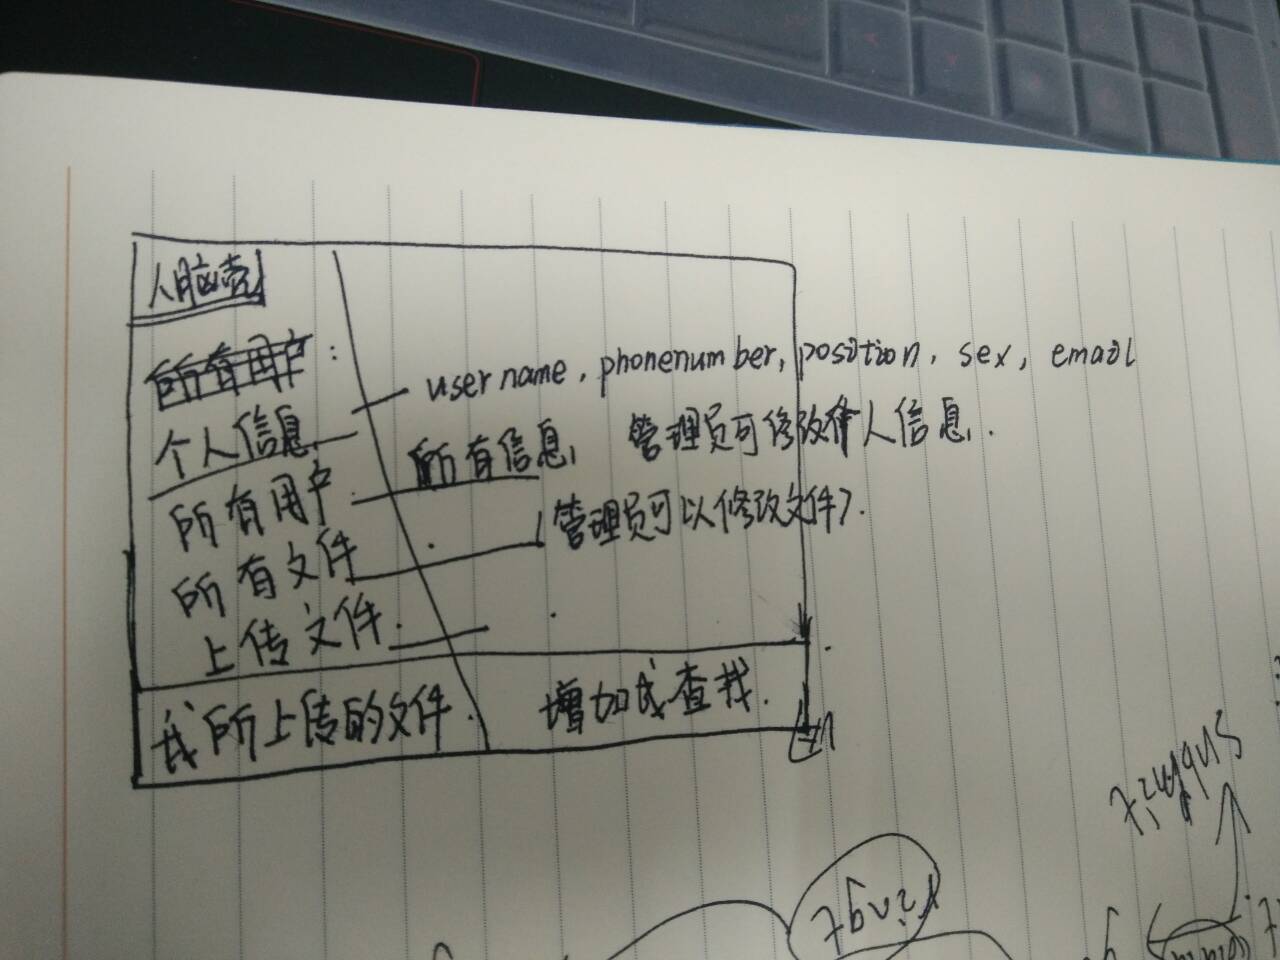 人脑壳
所有用户:
个人信息 username, phonenumber, position, sex, email
所有用户. 所有信息, 管理员可修改个人信息.
所有文件 (管理员可以修改文件).
上传文件.
我所上传的文件. 增加或查找.
submit